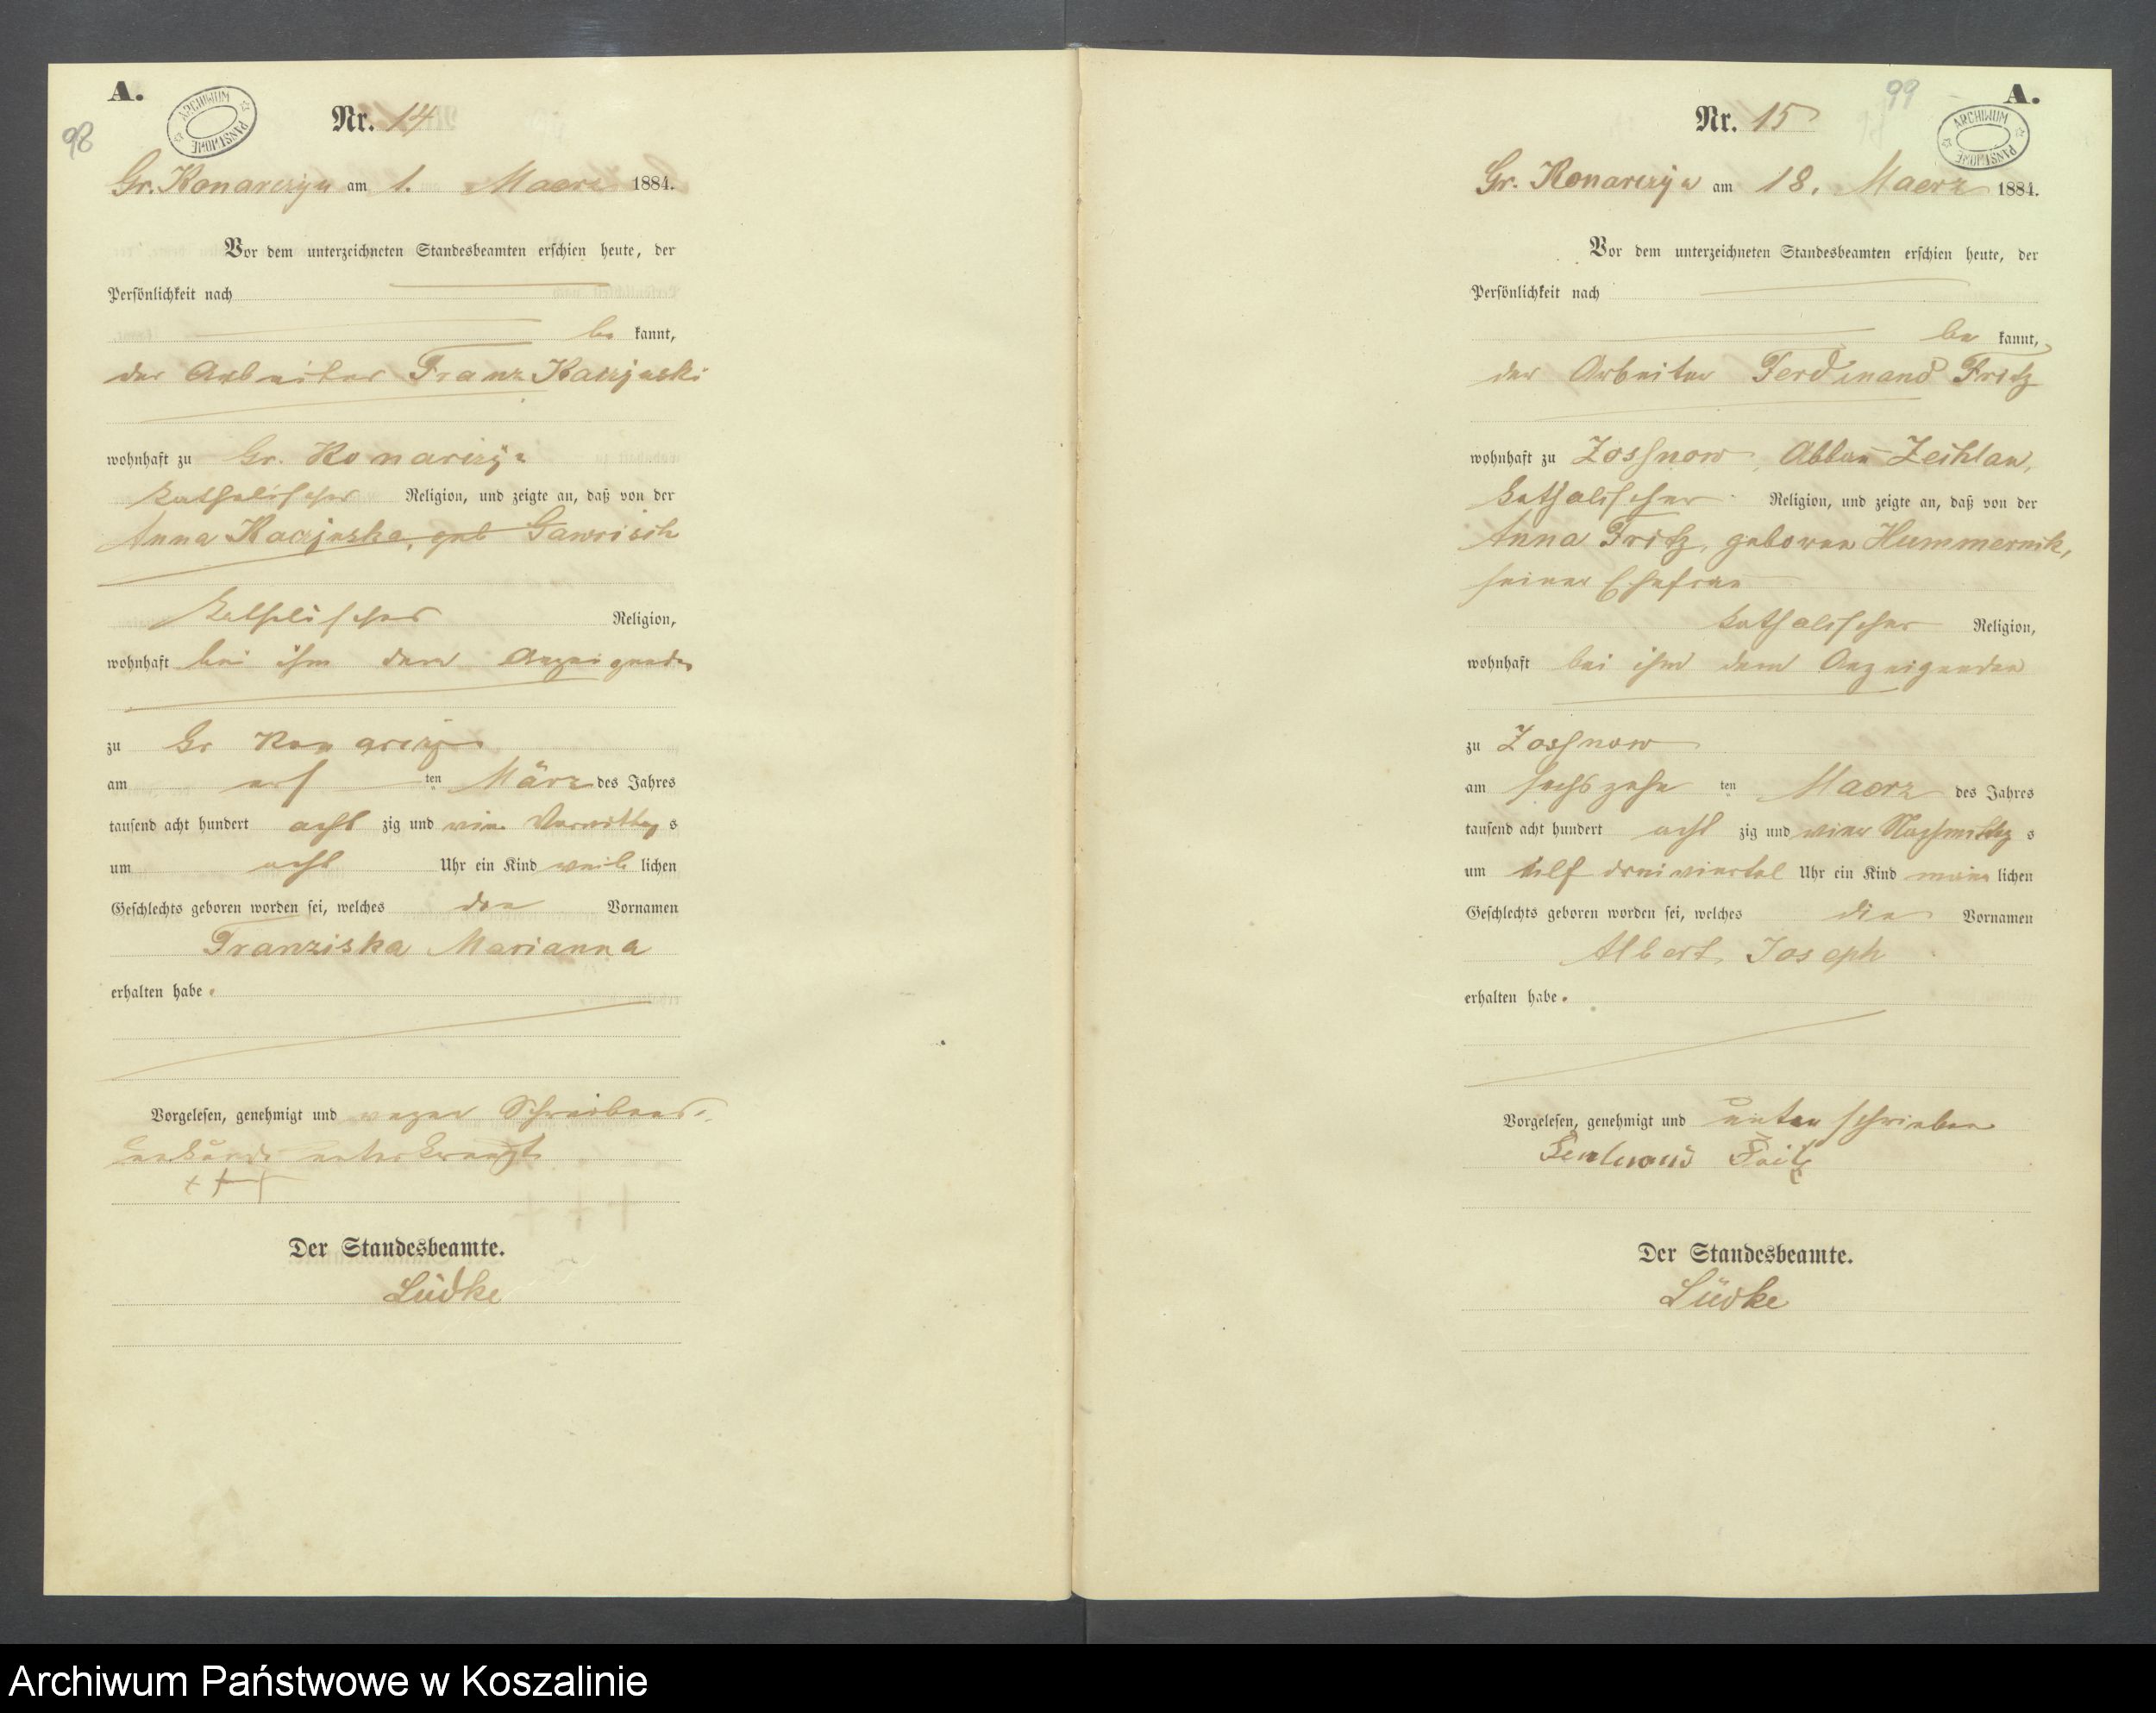 A.
98
ARCHIWUM PAŃSTWOWE
Nr. 14
Gr. Konarczyn am 1. Maerz 1884.
Vor dem unterzeichneten Standesbeamten erschien heute, der
Persönlichkeit nach
be kannt,
der Arbeiter Franz
wohnhaft zu Gr. Konarczyn
katholischer Religion, und zeigte an, daß von der
Anna geb
katholischer Religion,
wohnhaft bei ihm dem Anzeigenden
zu Gr Konarczyn
am ers ten März des Jahres
tausend acht hundert acht zig und vier Vormittag s
um acht Uhr ein Kind weib lichen
Geschlechts geboren worden sei, welches den Vornamen
Franziska Marianna
erhalten habe.
Vorgelesen, genehmigt und wegen Schreibens-
unkunde unterkreuzt
+++
Der Standesbeamte.
Lüdke
99
A.
ARCHIWUM PAŃSTWOWE
Nr. 15
Gr. Konarczyn am 18. Maerz 1884.
Vor dem unterzeichneten Standesbeamten erschien heute, der
Persönlichkeit nach
be kannt,
der Arbeiter Ferdinand Fritz
wohnhaft zu Zossnow, Abbau Zechlau,
katholischer Religion, und zeigte an, daß von der
Anna Fritz, geboren Hummernik,
seiner Ehefrau
katholischer Religion,
wohnhaft bei ihm dem Anzeigenden
zu Zossnow
am sechszehn ten Maerz des Jahres
tausend acht hundert acht zig und vier Nachmittag s
um elf dreiviertel Uhr ein Kind männ lichen
Geschlechts geboren worden sei, welches die Vornamen
Albert, Joseph
erhalten habe.
Vorgelesen, genehmigt und unterschrieben
Ferdinand Fritz
Der Standesbeamte.
Lüdke
Archiwum Państwowe w Koszalinie